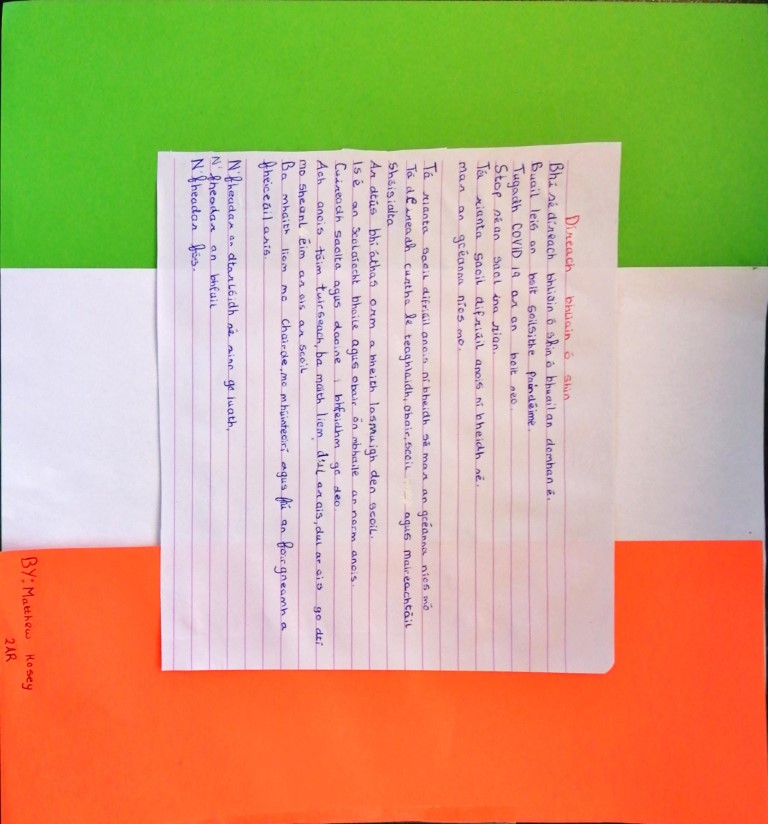 Díreach bhliain ó shin
Bhí sé díreach bhliain ó shin ó bhuail an domhan é.
Buail leis an bolt soilsithe paindéime.
Tugadh COVID 19 ar an bolt seo.
Stop sé an saol ina rian.
Tá rianta saoil difriúil anois ní bheidh sé.
mar an gcéanna níos mo.
Tá rianta saoil difriúil anois ní bheidh sé mar an gcéanna níos mó
Tá deireadh curtha le teaghlaidh, obair, scoil agus maireachtáil
shóisialta
Ar dtús bhí áthas orm a bheith lasmuigh den scoil.
Is é an scolaíocht bhaile agus obair ón mbaile an norm anois.
Cuireadh saolta agus daoine i bhfeidhm go deo
Ach anois táim tuirseach, ba maith liom dul ar ais, dul ar ais go dtí
mo sheanl éim ar ais ar scoil
Ba mhaith liom mo chairde, mo mhúinteoirí agus fiú an foirgneamh a
fheiceáil arís.
N'fheadar an dtarlóidh sé sinn go luath,
N'fheadar an bhfuil
N'fheadar fós.
BY: Matthew Hosey
2AR